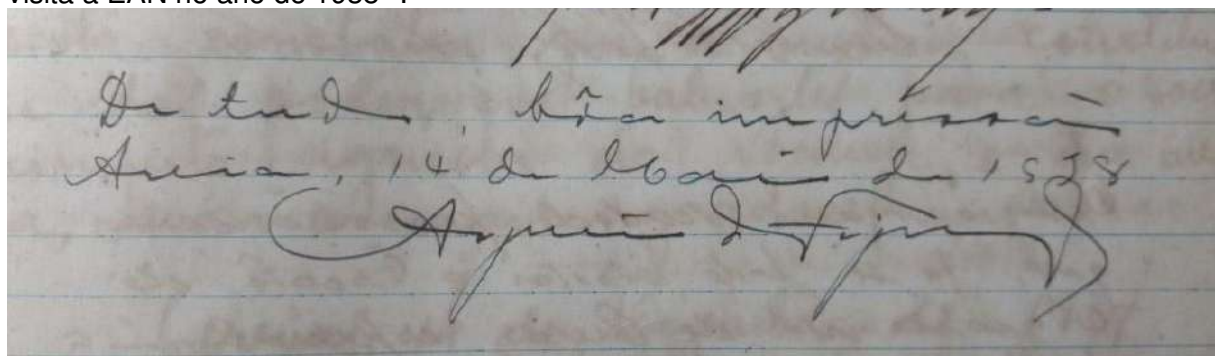 visita à EAN no ano de 1938".
De tudo, bôa impressão
Areia, 14 de Maio de 1938
Argemiro de Figueiredo